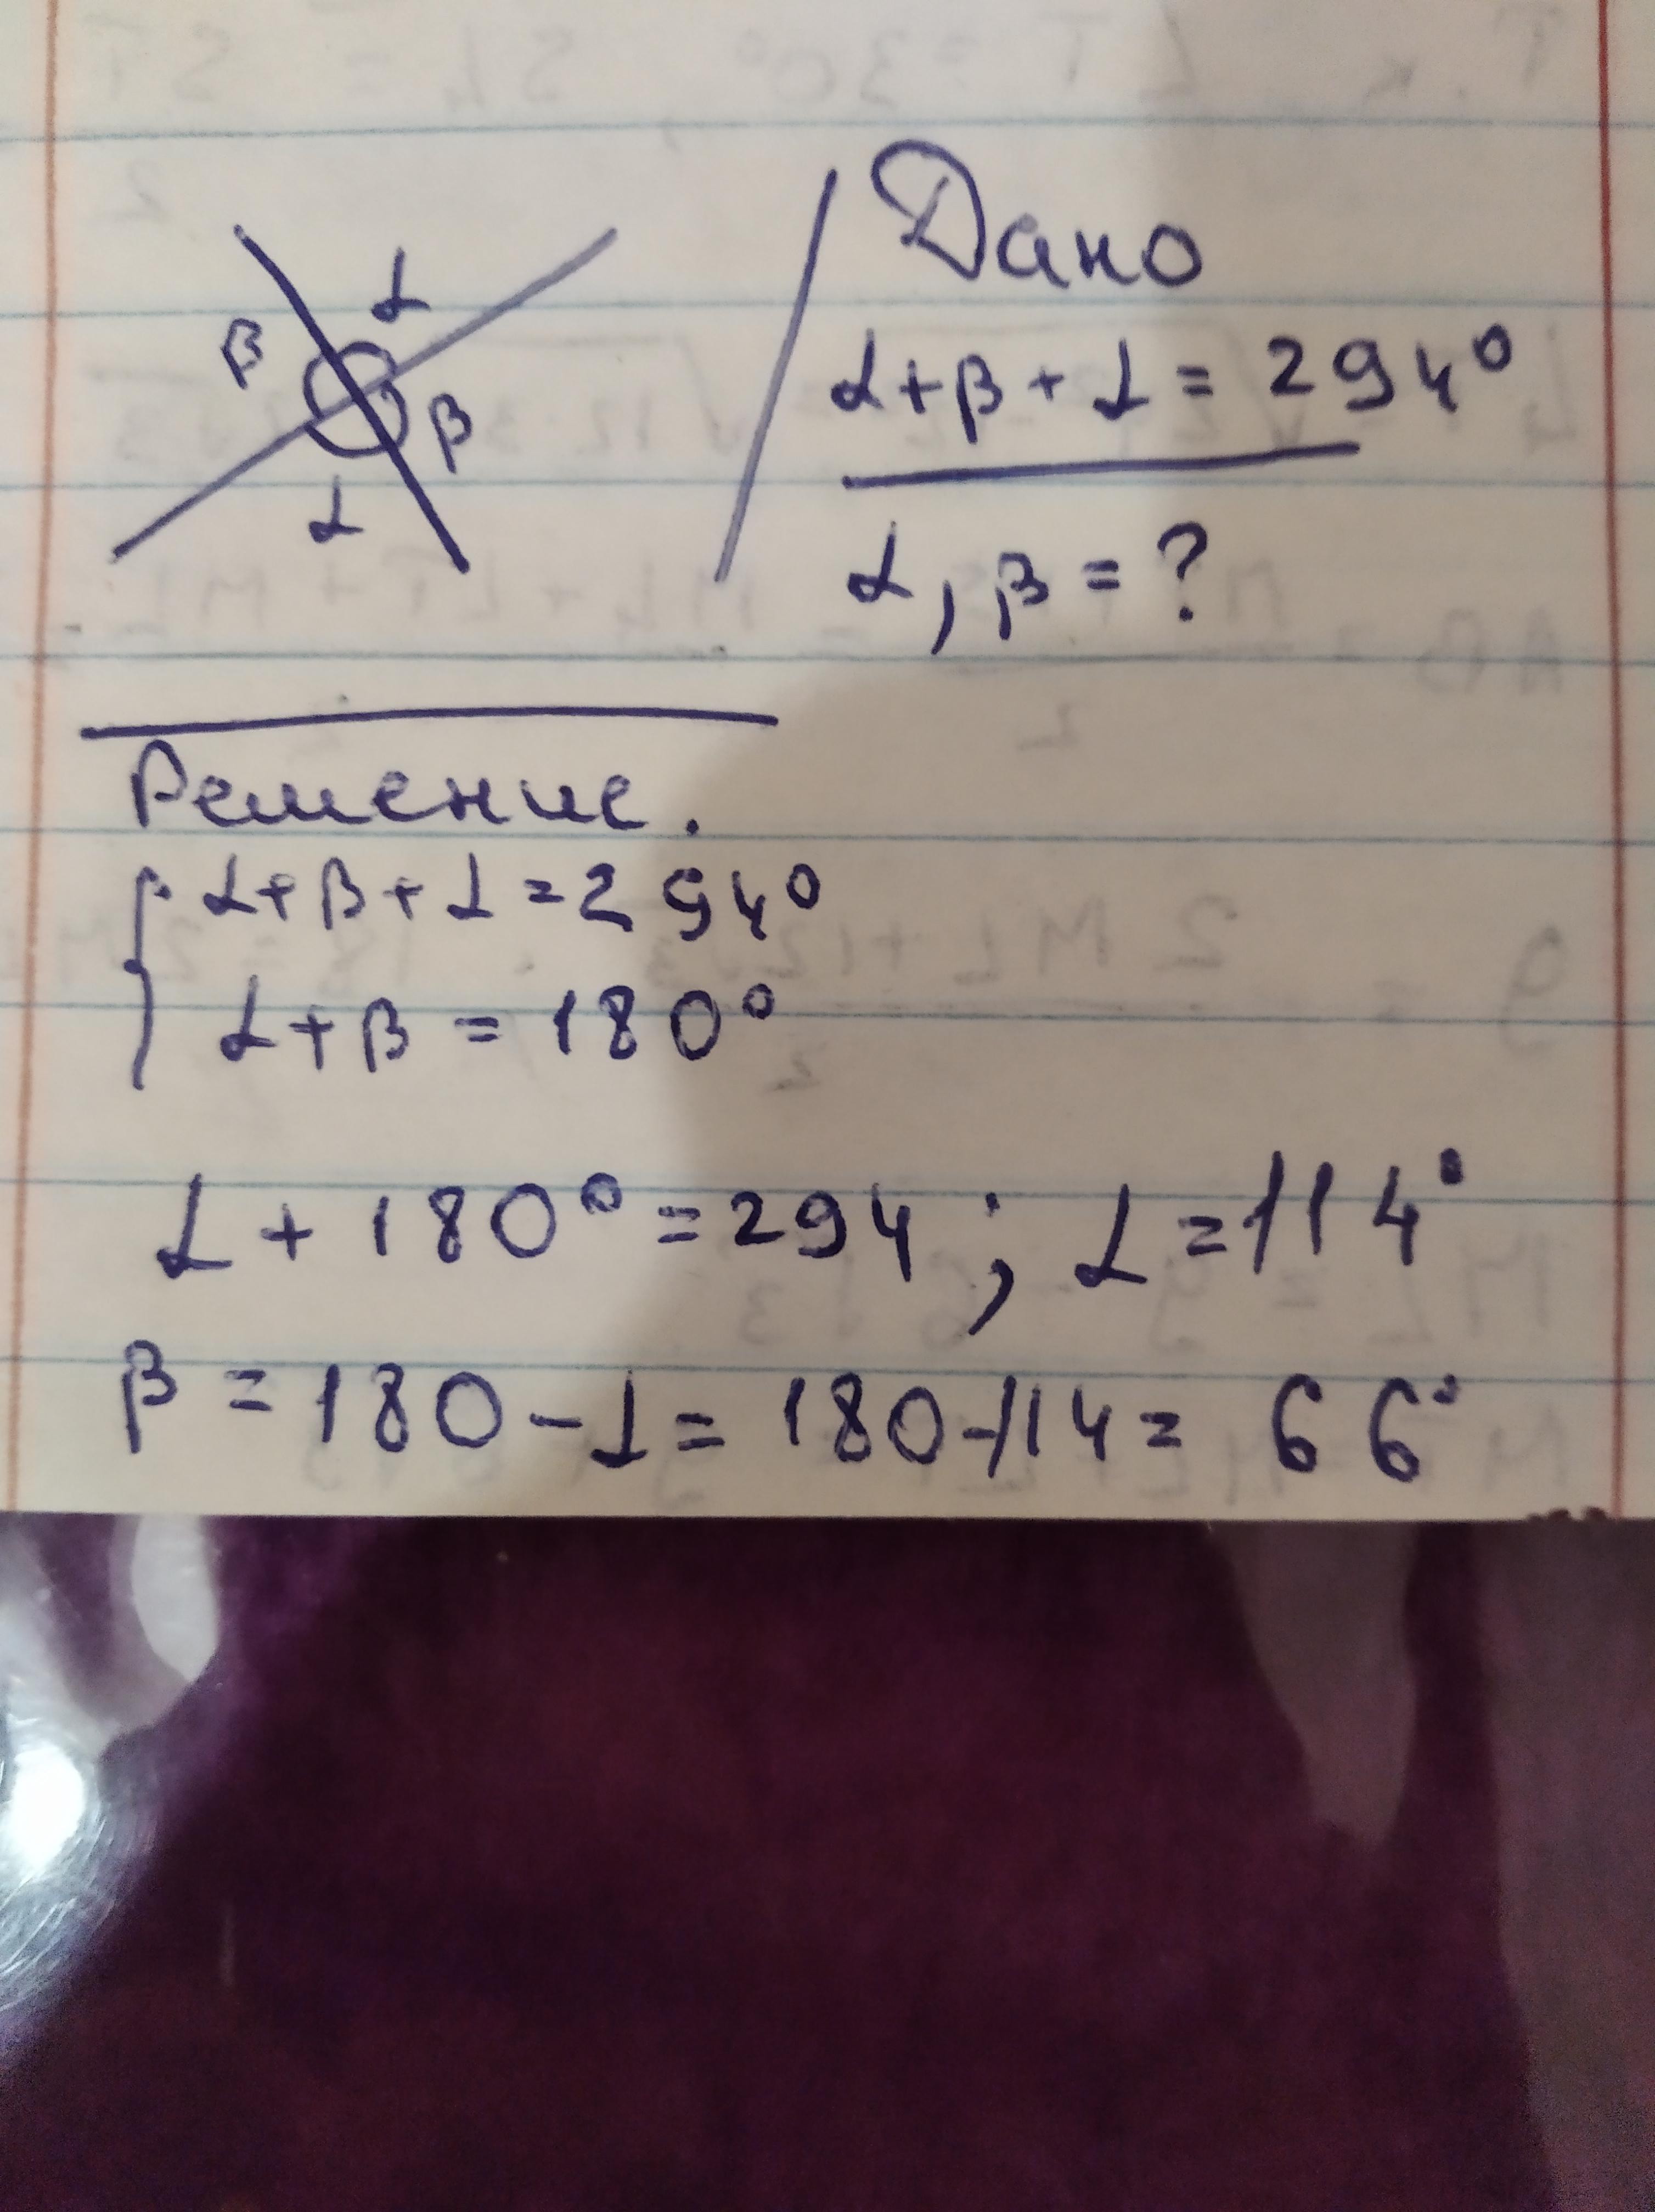 α
β
β
α
Дано
α+β+α=294°
α,β=?
Решение.
α+β+α=294°
α+β=180°
α+180°=294; α=114°
β=180-α=180-114=66°